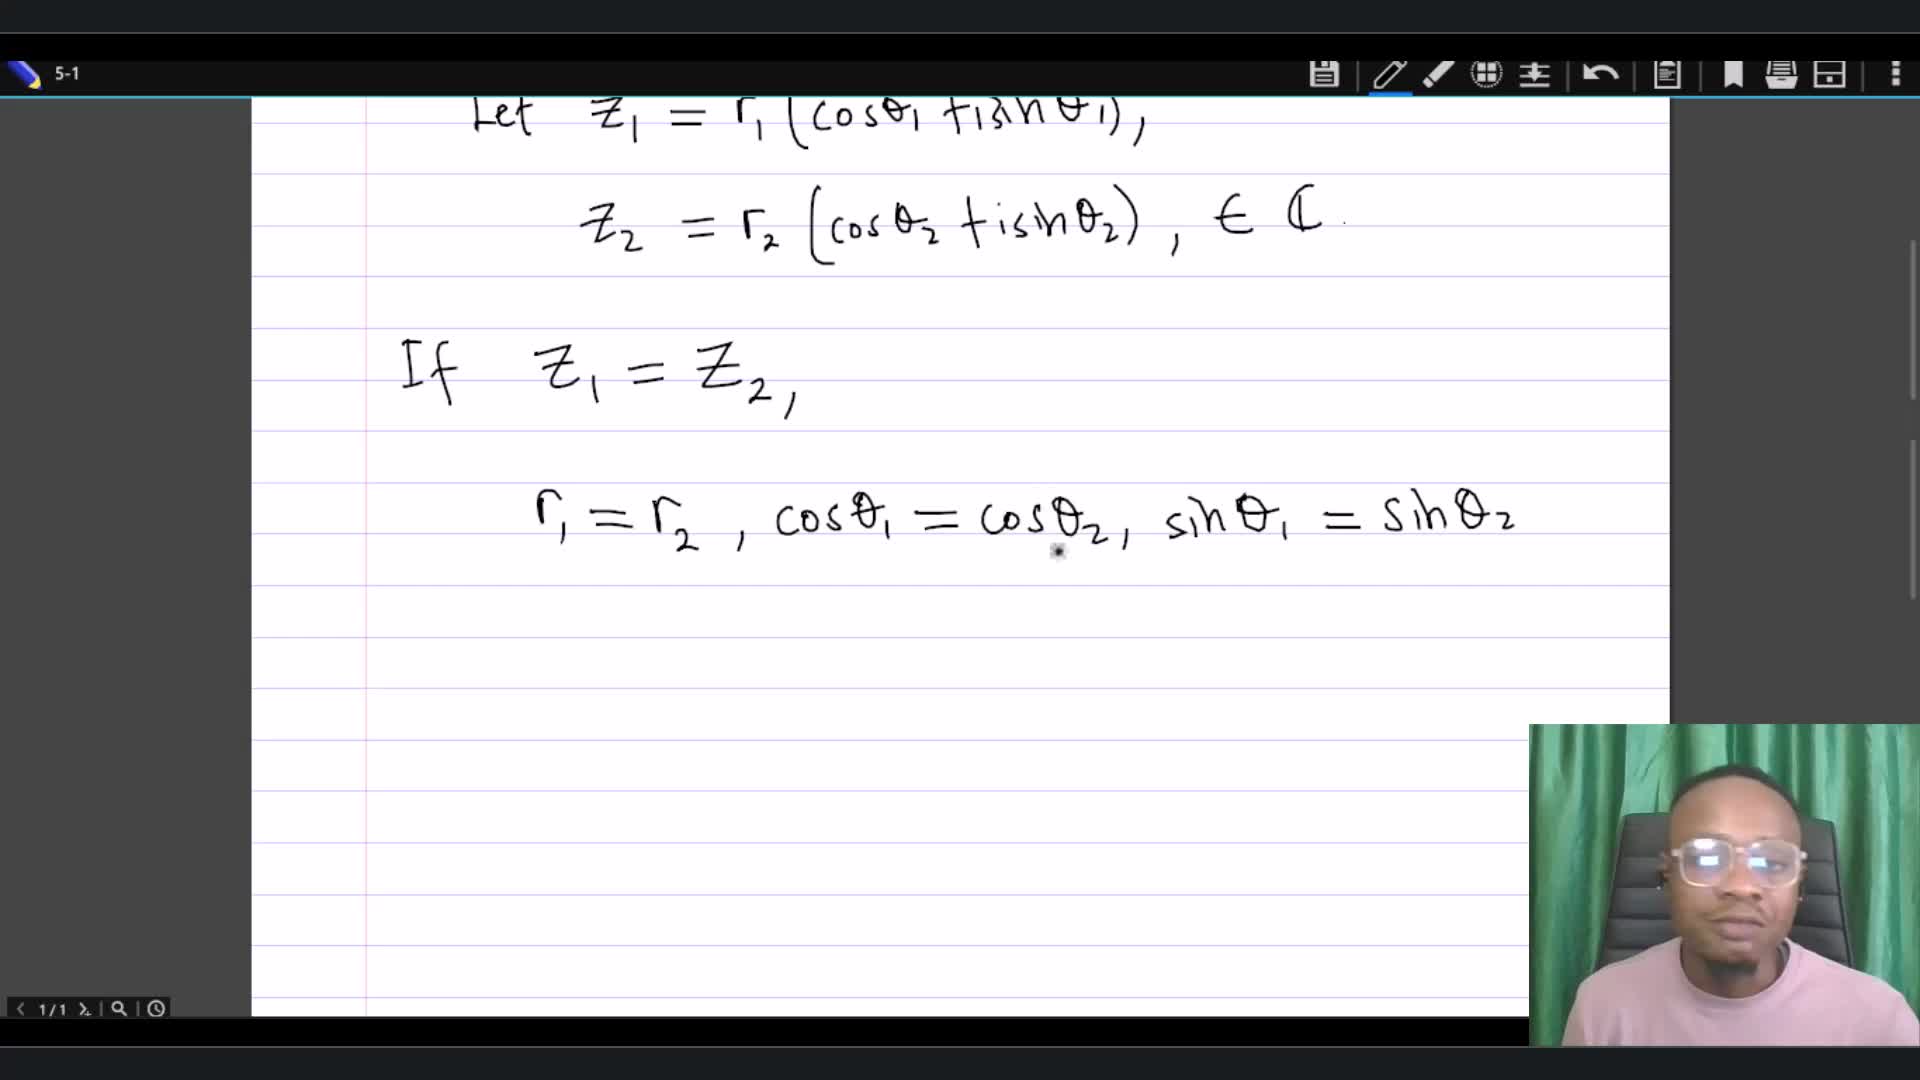 5-1
Let z₁ = r₁ (cosθ₁ + isinθ₁),
z₂ = r₂ (cosθ₂ + isinθ₂), ∈ ℂ.
If z₁ = z₂,
r₁ = r₂, cosθ₁ = cosθ₂, sinθ₁ = sinθ₂
1/1